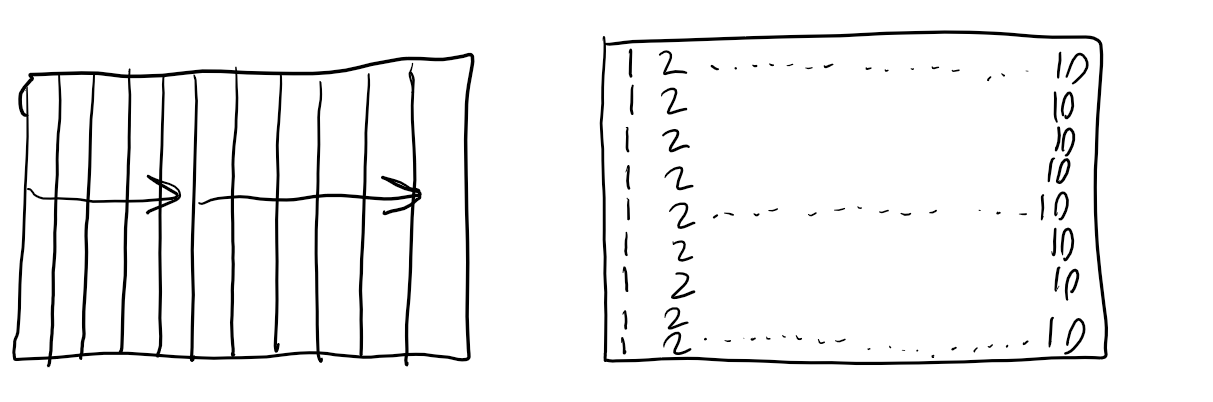 1 2 ........ 10
1 2 10
1 2 10
1 2 10
1 2 ........ 10
1 2 10
1 2 10
1 2
1 2 ........ 10